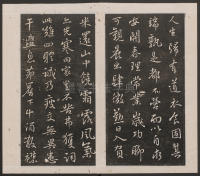 人生歸有道衣食固其
端孰是都不營而以求自
安開春理常業歲功聊
可觀晨出肆微勤日入負
耒還山中饒霜露風氣
亦先寒田家豈不苦弗獲辭
此難四體誠乃疲庶無異患
干盥濯息簷下斗酒散襟